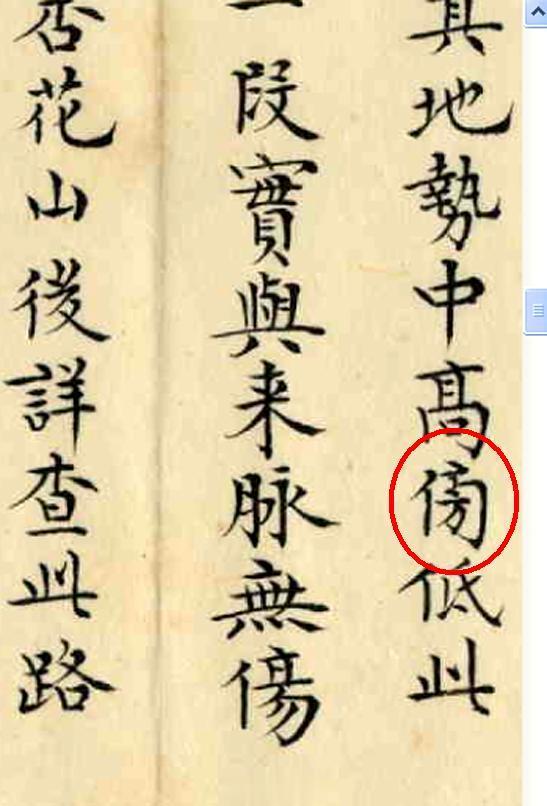 其地勢中髙傍低此
一段實與来脉無傷
杏花山後詳查此路